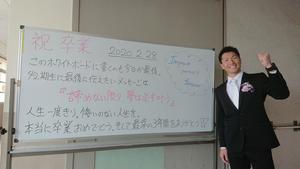 祝 卒業
2020.2.28
このホワイトボードに書くのも今日が最後。
最後に伝えたいメッセージは
『諦めない限り 夢は必ず叶う』
人生一度きり、悔いのない人生を。
本当に卒業おめでとう。そして最高の3年間をありがとう!!